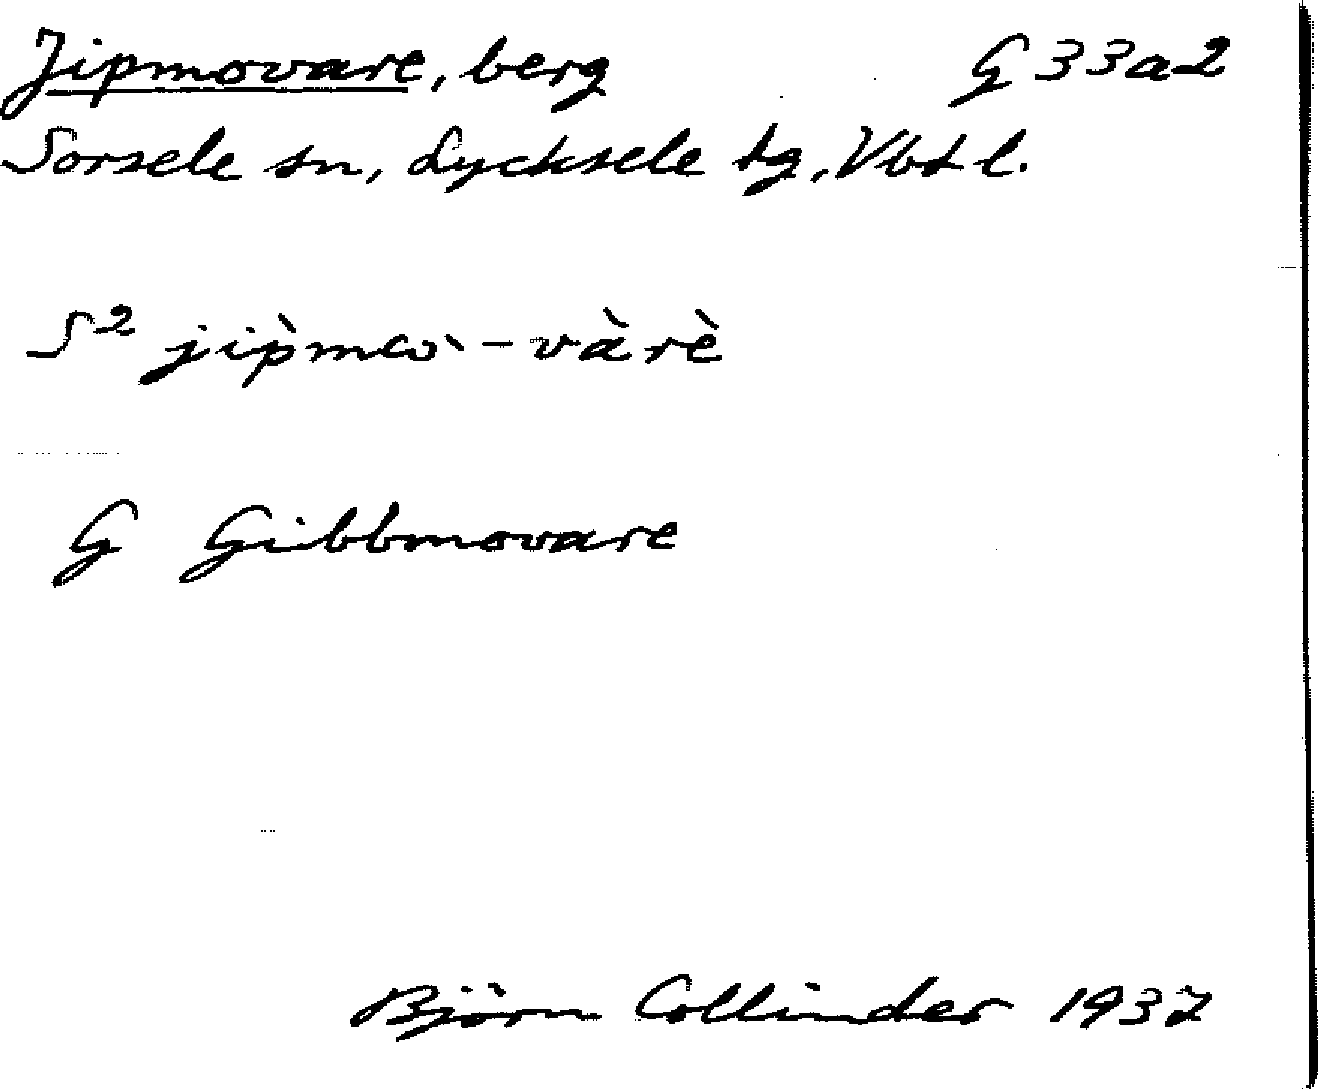 Jipmovare, berg G 33a2
Sorsele sn, Lycksele tg, Vbtl.
S² jip̀mꞷ̀-vàrè
G Gibbmovare
Björn Collinder 1937